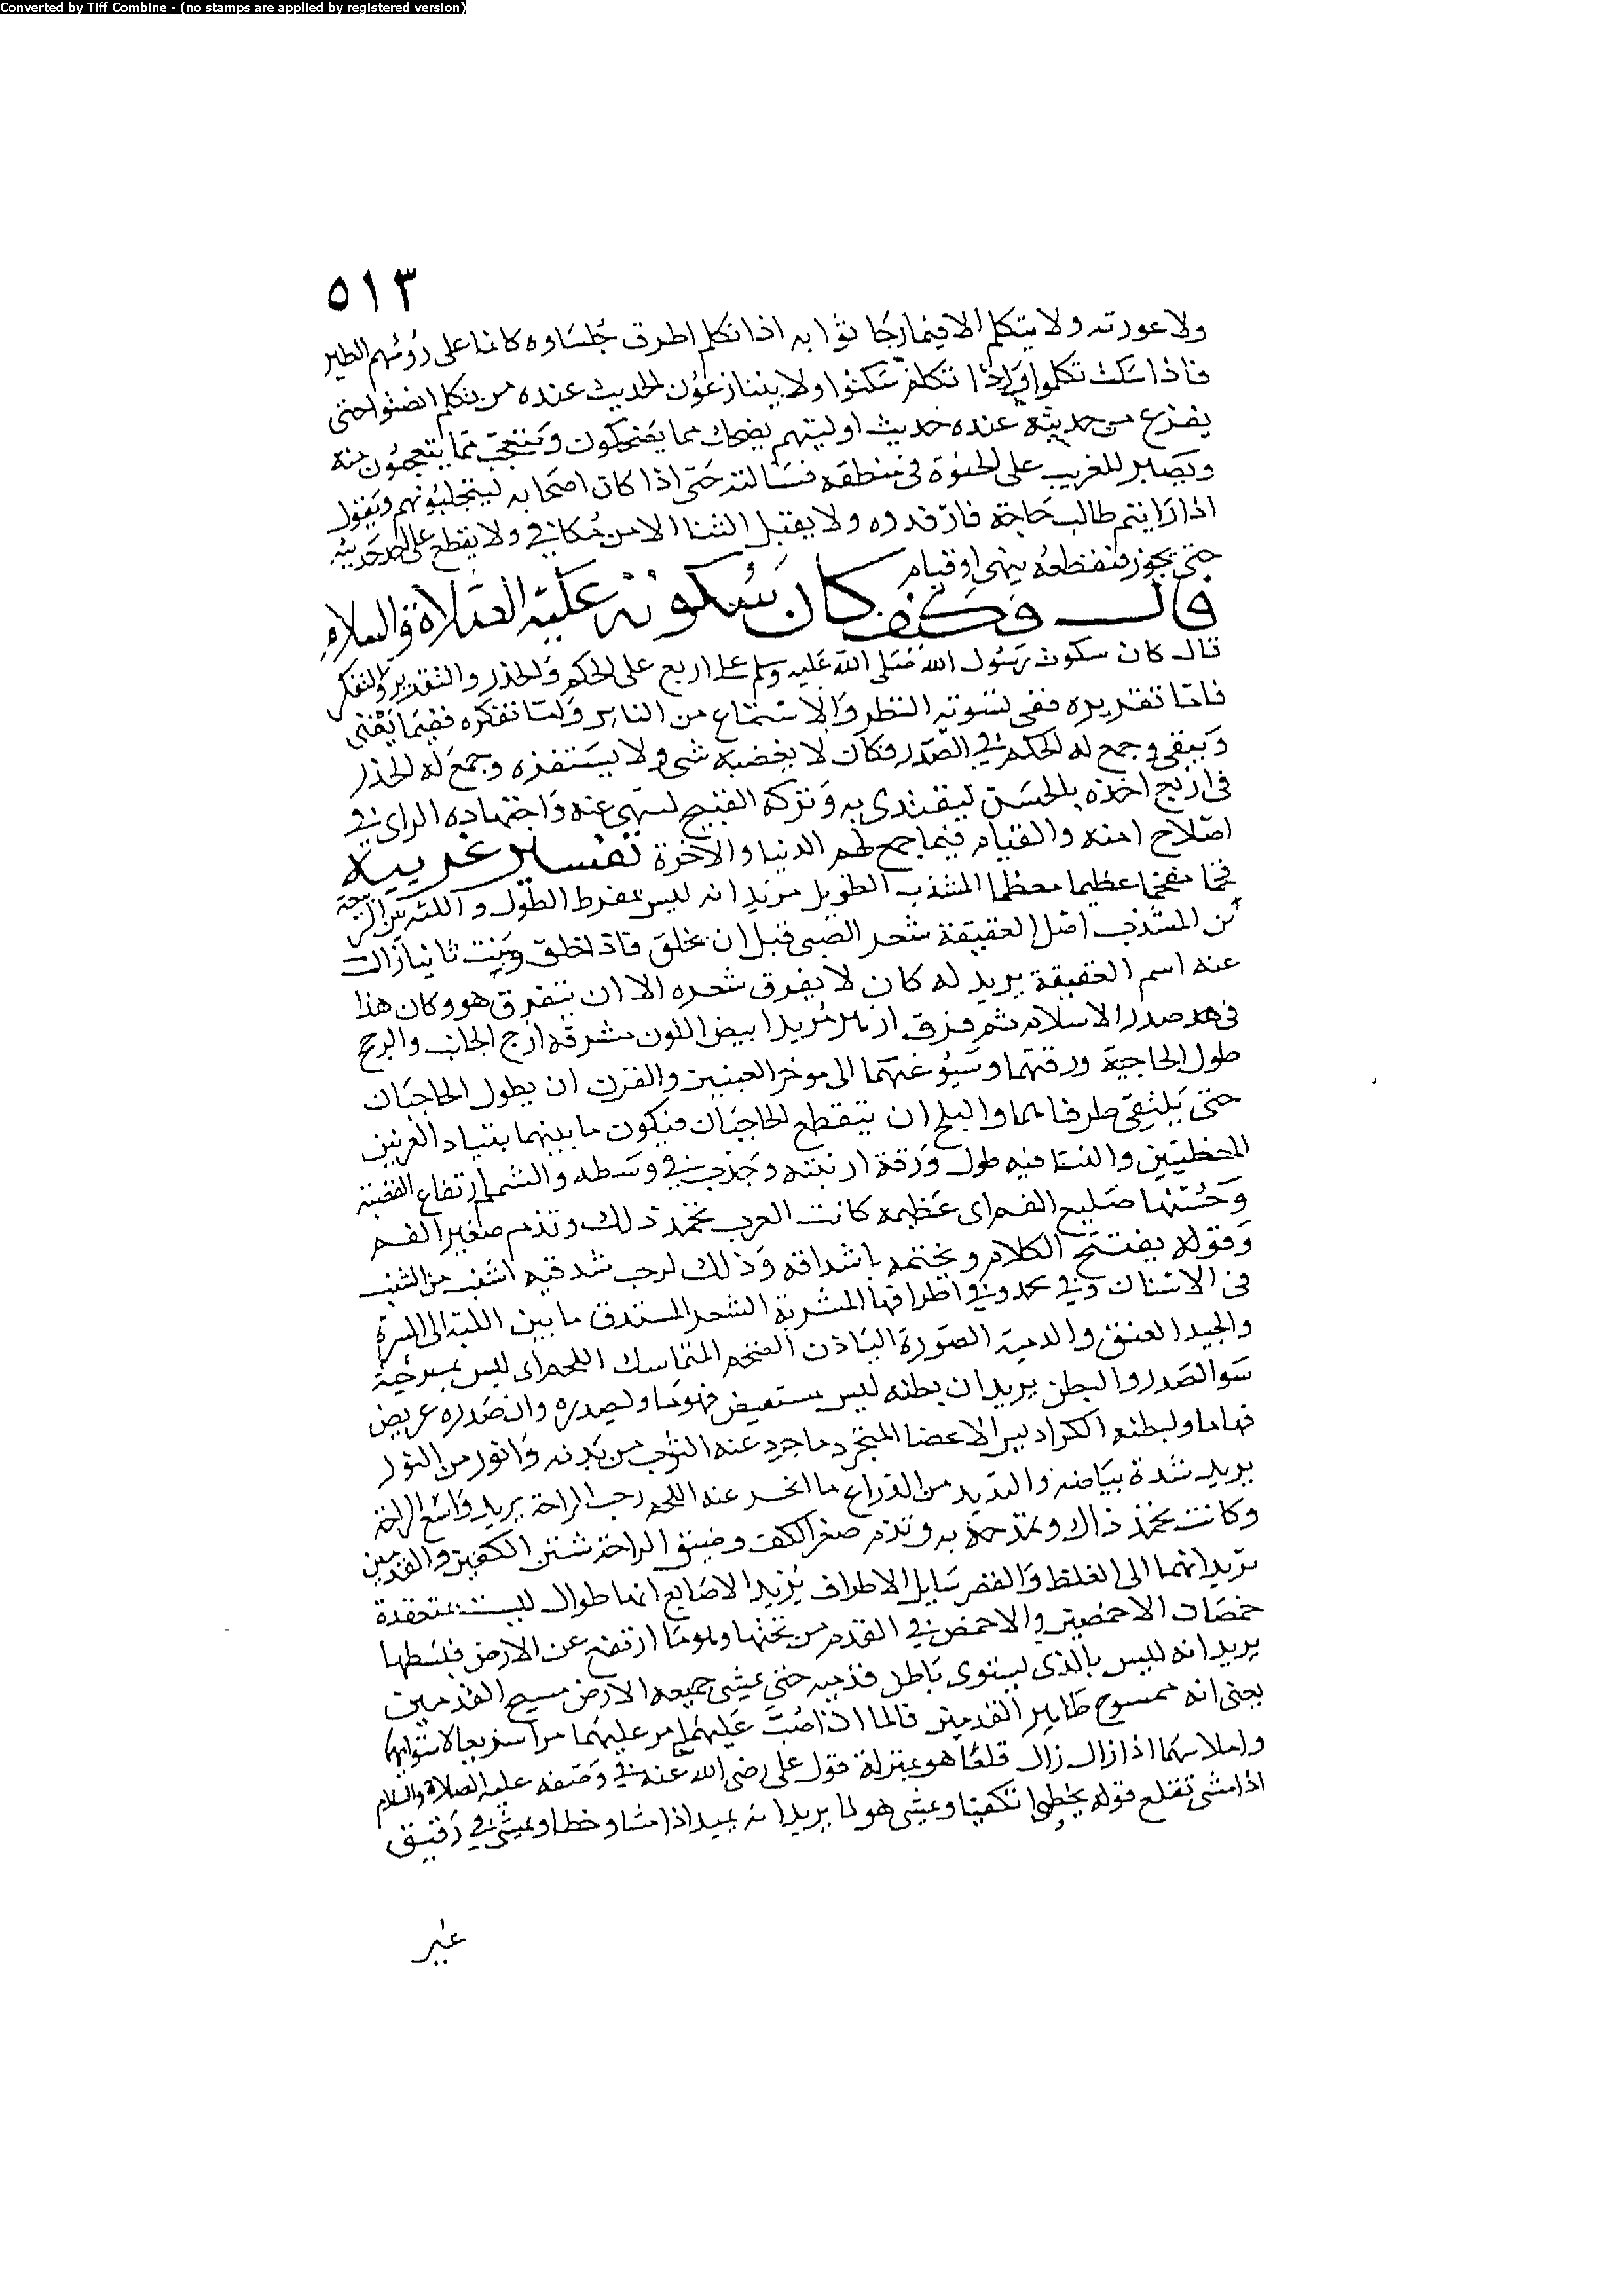 Converted by Tiff Combine - (no stamps are applied by registered version)
٥١٣
ولا عورته ولا يتكلم الا فيما رجا ثوابه اذا تكلم اطرق جلساوه كانما على رؤسهم الطير
فاذا سكت تكلموا واذا تكلم سكتوا ولا يتنازعون الحديث عنده من تكلم انصتوا حتى
يفرغ من حديثه عنده حديث اوليتهم يضحك مما يضحكون ويتعجب مما يتعجبون منه
ويصابر للغريب على الجفوة في منطقه ومسالته حتى اذا كان اصحابه ليستجلبونهم ويقول
اذا رايتم طالب حاجة فارفدوه ولا يقبل الثنا الا من مكافي ولا يقطع على احد حديثه
حتى يجوز فيقطعه بنهي او قيام
قال فكيف كان سكوته عليه الصلاة والسلام
قال كان سكوت رسول الله صلى الله عليه وسلم على اربع على الحكم والحذر والتقدير والتفكر
فاما تقديره ففي تسوية النظر والاستماع من الناس واما تفكره ففيما يفنى
ويبقى وجمع له الحكم في الصدر فكان لا يغضبه شي ولا يستفزه وجمع له الحذر
في اربع اخذه بالحسن ليقتدى به وتركه القبيح لينتهى عنه واجتهاده الراي في
اصلاح امته والقيام فيما جمع لهم الدنيا والاخرة تفسير غريبه
فخما مفخما عظيما معظما المشذب الطويل يريد انه ليس بمفرط الطول
من المشذب اصل العقيقة شعر الصبي قبل ان يحلق فاذا حلق ونبت ثانيا زالت
عنه اسم العقيقة يريد انه كان لا يفرق شعره الا ان يتفرق هو وكان هذا
في صدر الاسلام ثم فرق ازهر يريد ابيض اللون مشرقه ازج الحاجب والزجج
طول الحاجبين ودقتهما وسبوغهما الى موخر العينين والقرن ان يطول الحاجبان
حتى يلتقي طرفاهما والبلج ان ينقطع الحاجبان فيكون ما بينهما
والقنا فيه طول ودقة ارنبته وحدب في وسطه والشمم ارتفاع القصبة
وحسنها ضليع الفم اى عظيمه كانت العرب تحمد ذلك وتذم صغير الفم
وقوله يفتتح الكلام ويختمه باشداقه وذلك لرحب شدقيه اشنب من الشنب
في الاسنان وهي تحدد في اطرافها المسربة الشعر المستدق ما بين اللبة الى السرة
والجيد العنق والدمية الصورة البادن الضخم المتماسك اللحم اى ليس بمسترخية
سوا الصدر والبطن يريد ان بطنه ليس بمستفيض فهو مساو لصدره وان صدره عريض
فهو مساو لبطنه الكراديس الاعضا المتجرد ما جرد عنه الثوب من بدنه وانور من النور
يريد شدة بياضه والزند من الذراع ما انحسر عنه اللحم رحب الراحة يريد واسع الراحة
وكانت تحمد ذاك وتمتدح به وتذم صغر الكف وضيق الراحة شثن الكفين والقدمين
يريد انهما الى الغلظ والقصر سايل الاطراف يريد الاصابع انها طوال ليست بمتعقدة
خمصان الاخمصين والاخمص في القدم من تحتها وهو ما ارتفع عن الارض في وسطها
يريد انه ليس بالذى يستوى باطن قدميه حتى يمشى جميعه الارض مسيح القدمين
يعنى انه ممسوح ظاهر القدمين فالما اذا صب عليهما مر عليهما مرا سريعا لاستوايهما
واملاسهما اذا زال زال قلعا هو بمنزلة قول على رضى الله عنه في وصفه عليه الصلاة والسلام
اذا مشى تقلع قوله يخطوا تكفيا ويمشى هونا يريد انه يميد اذا مشا وخطا ويمشى في رفق
غير